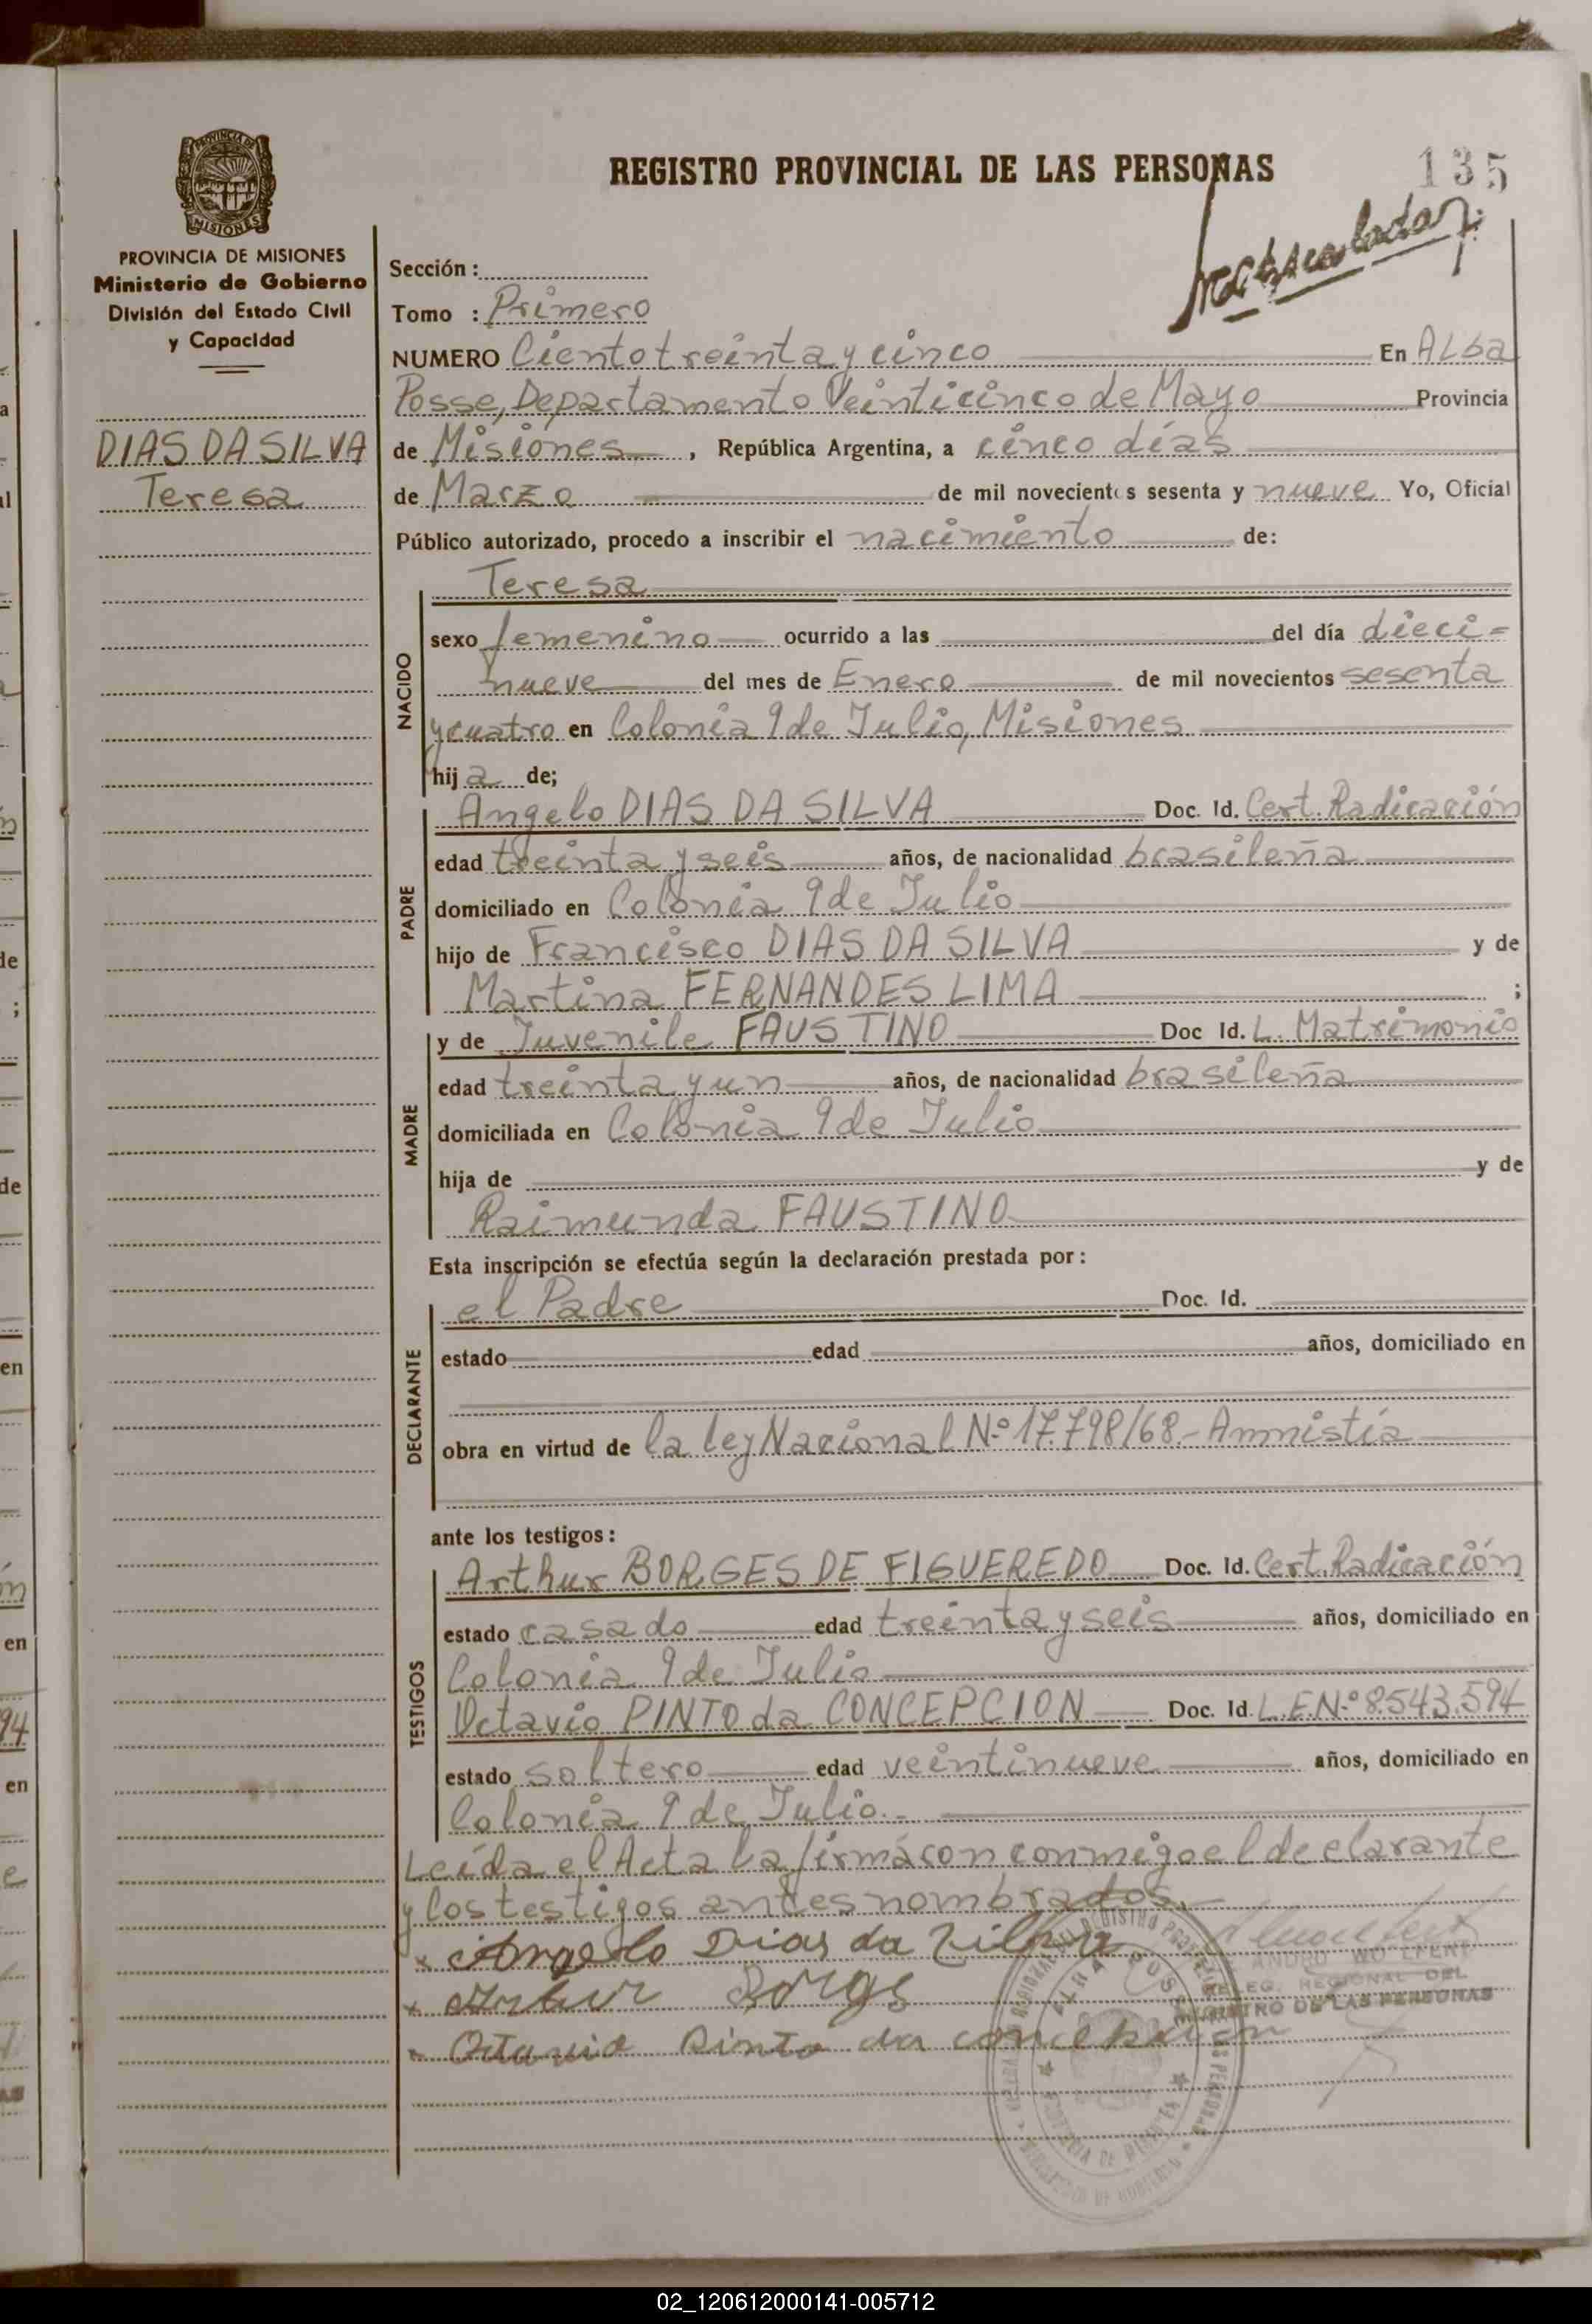 REGISTRO PROVINCIAL DE LAS PERSONAS
135
PROVINCIA DE MISIONES
Ministerio de Gobierno
División del Estado Civil
y Capacidad
DIAS DA SILVA
Teresa
Sección:
Tomo : Primero
NUMERO Ciento treinta y cinco En Alba
Posse, Departamento Veinticinco de Mayo Provincia
de Misiones, República Argentina, a cinco días
de Marzo de mil novecientos sesenta y nueve Yo, Oficial
Público autorizado, procedo a inscribir el nacimiento de:
NACIDO
Teresa
sexo femenino ocurrido a las del día dieci=
nueve del mes de Enero de mil novecientos sesenta
y cuatro en Colonia 9 de Julio, Misiones
hij a de;
PADRE
Angelo DIAS DA SILVA Doc. Id. Cert. Radicación
edad treinta y seis años, de nacionalidad brasileña
domiciliado en Colonia 9 de Julio
hijo de Francisco DIAS DA SILVA y de
Martina FERNANDES LIMA ;
MADRE
y de Juvenile FAUSTINO Doc Id. L. Matrimonio
edad treinta y un años, de nacionalidad brasileña
domiciliada en Colonia 9 de Julio
hija de y de
Raimunda FAUSTINO
Esta inscripción se efectúa según la declaración prestada por:
DECLARANTE
el Padre Doc. Id.
estado edad años, domiciliado en
obra en virtud de la ley Nacional Nº 17.798/68.- Amnistía
ante los testigos:
TESTIGOS
Arthur BORGES DE FIGUEREDO Doc. Id. Cert. Radicación
estado casado edad treinta y seis años, domiciliado en
Colonia 9 de Julio
Octavio PINTO da CONCEPCION Doc. Id L.E.Nº 8.543.594
estado soltero edad veintinueve años, domiciliado en
Colonia 9 de Julio.-
Leída el Acta la firmáron conmigo el declarante
y los testigos antes nombrados.-
x Angelo Dias da Silva
x Artur Borge
x Otavio Pinto da
REGIONAL DEL
REGISTRO DE LAS PERSONAS
02_120612000141-005712